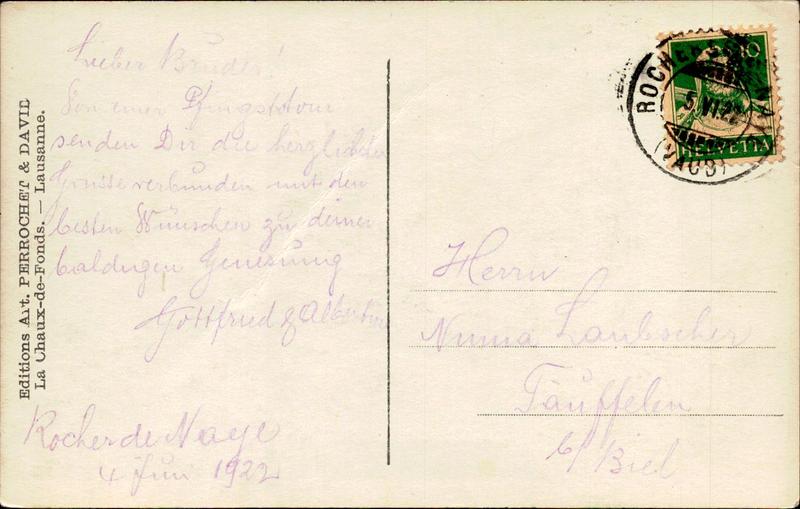 Lieber Bruder!
Von einer Pfingsttour
senden Dir die herzlichsten
Grüsse verbunden mit den
besten Wünschen zu deiner
baldigen Genesung
Gottfried &
Rocher de Naye
4 Juni 1922
Editions Art. PERROCHET & DAVID
La Chaux-de-Fonds. — Lausanne.
10
HELVETIA
ROCHERS
5.VI.22
(VAUD)
Herrn
Numa Laubscher
Täuffelen
b/ Biel